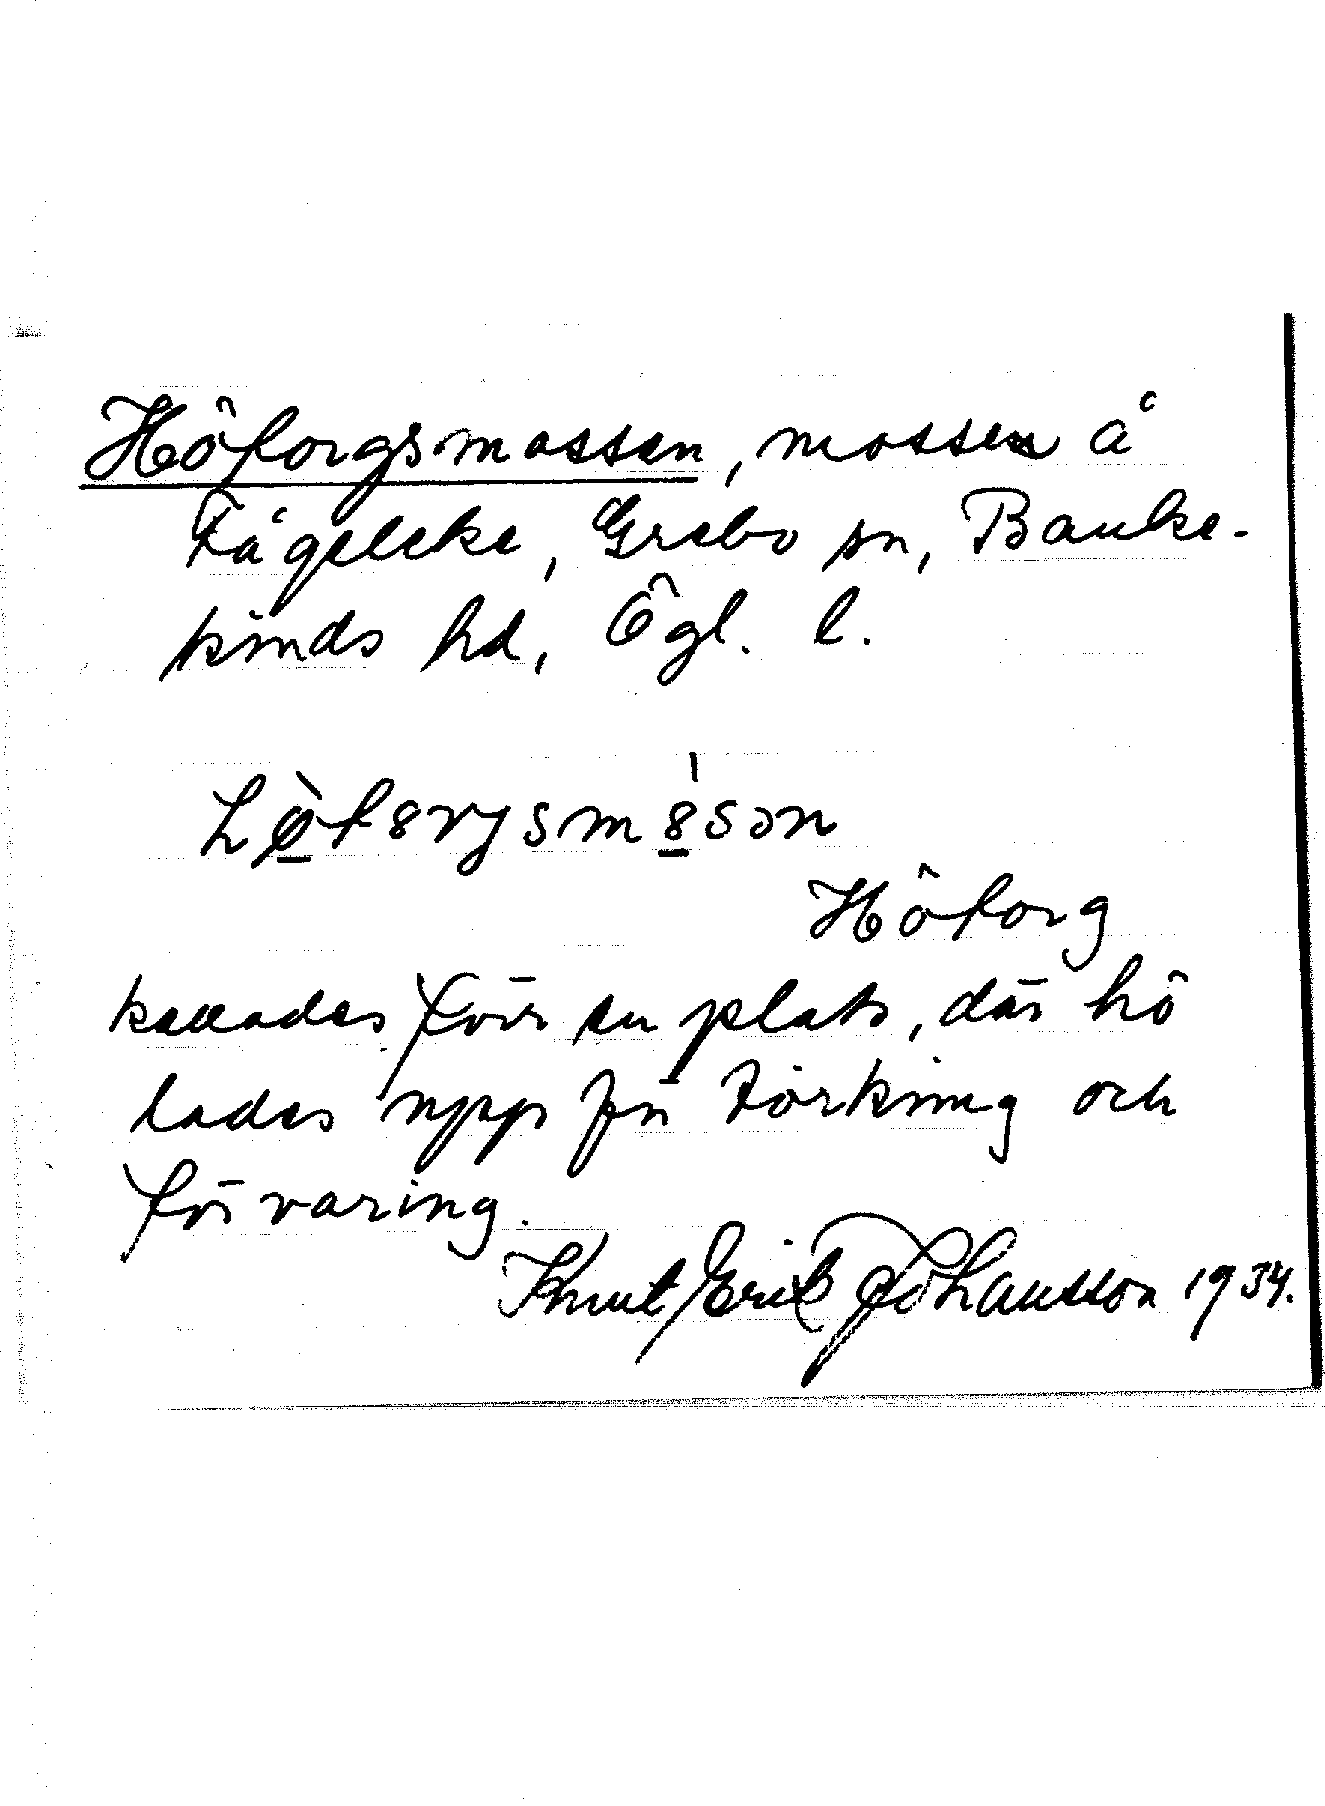 Hötorgsmossen, mossen å
Fågeleke, Grebo sn, Banke-
kinds hd, Ögl. l.
hø̀tɔrjsmɔ́sən
Hötorg
kallades förr en plats, där hö
lades upp för torkning och
förvaring.
Knut Erik Johansson 1934.